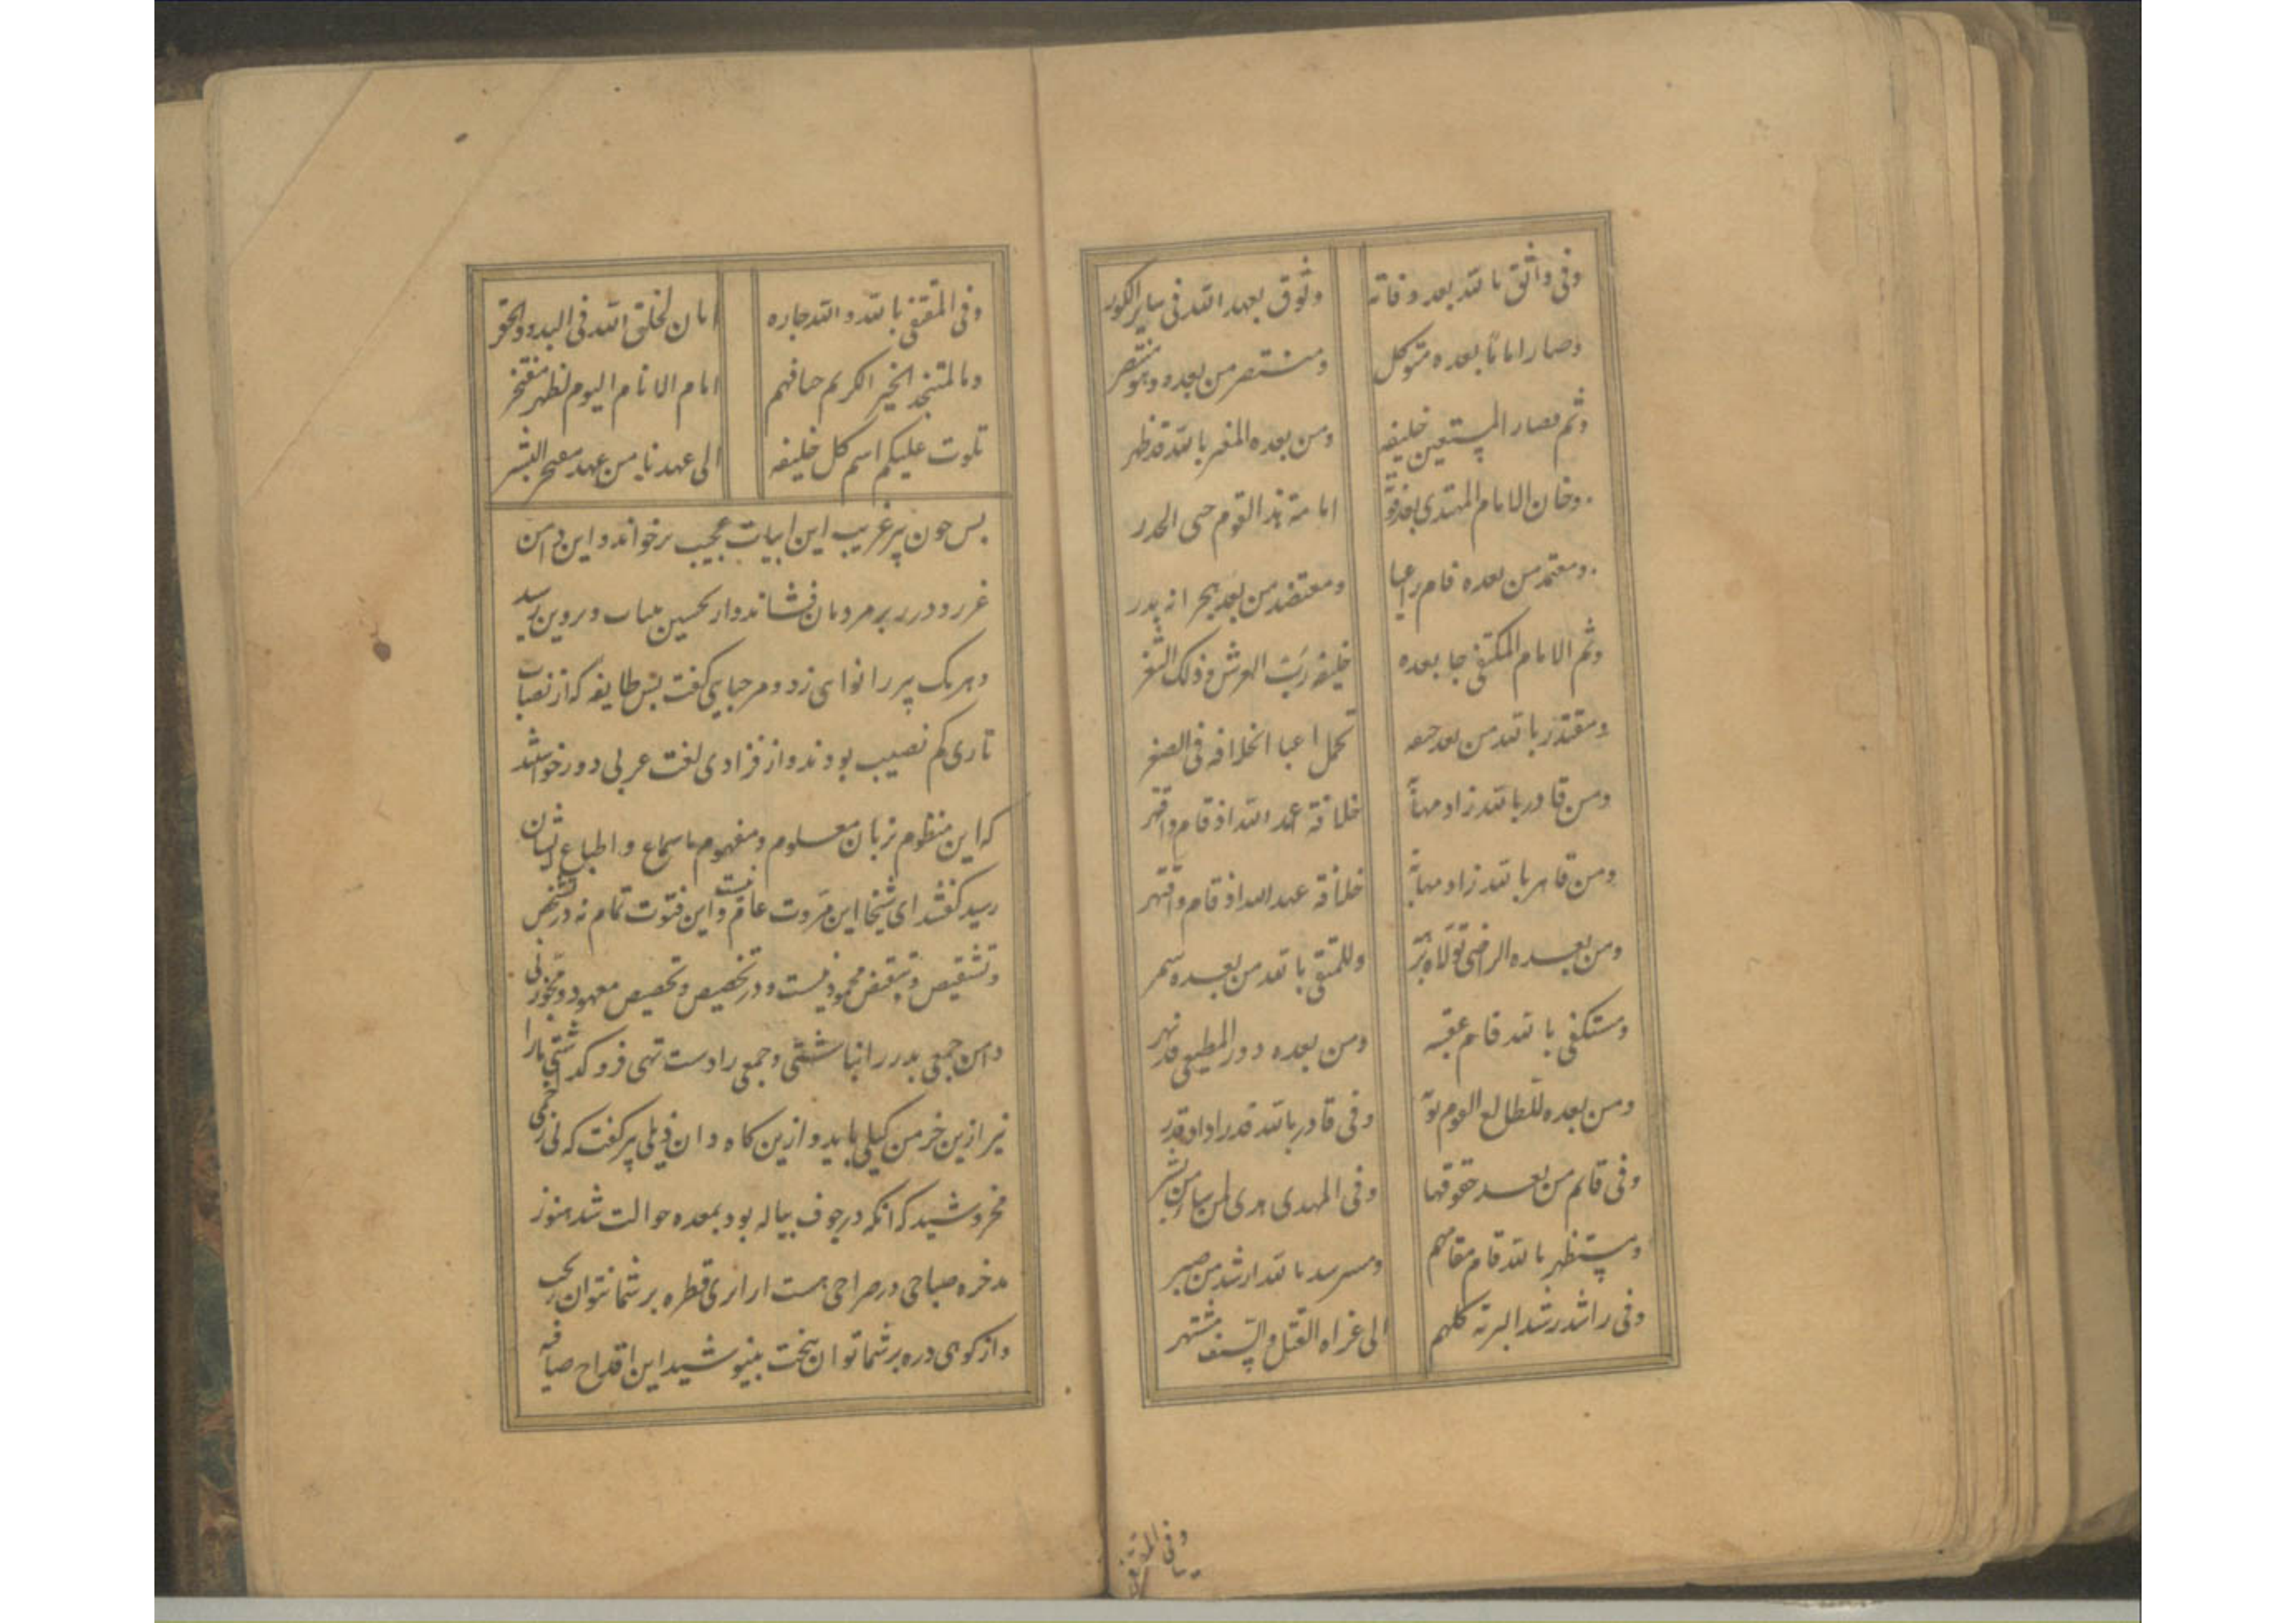 وفی واثق بالله بعد وفاته وثوق بعهد الله فی سایر الکور
وصار اماما بعده متوکل ومنتصر من بعده وهو منتصر
وثم فصار المستعین خلیفه ومن بعده المعتز بالله قد ظهر
وخان الامام المهتدی بعد امامة هذا القوم حتی الحدر
ومعتمد من بعده قام راعیا ومعتضد من بعد بحر انه بدر
وثم الامام المکتفی جا بعده خلیفه رب العرش فی ذلک الثغر
ومقتدر بالله من بعد جعفر تحمل اعبا الخلافه فی الصغر
ومن قادر بالله زاد مهابة خلافة عبد الله اذ قام واقتهر
ومن قاهر بالله زاد مهابة خلافة عبد الله اذ قام واقتهر
ومن بعده الراضی تولاه وللمتقی بالله من بعده سمر
ومستکفی بالله قام عقبه ومن بعده دور المطیعی قد نهر
ومن بعده للطایع القوم وفی قادر بالله قدر اذا قدر
وفی قایم من بعد حقوقها وفی المهدی هدی لمن من بشر
ومستظهر بالله قام مقامهم ومسترشد بالله ارشد من صبر
وفی راشد رشد البریة کلهم الی غراه القتل والسیف مشتهر
وفی المقتفی
وفی المقتفی بالله والله جاره امان لخلق الله فی البدو والحضر
وبالمستنجد الخیر الکریم امام الانام الیوم نظهر مفتخر
تلوت علیکم اسم کل خلیفه الی عهدنا من عهد معجر البشر
پس چون پیر غریب این ابیات عجیب برخواند و این دامن
غرر و درر بر مردمان فشاند و از تحسین
و هر یک پیر را نوای زد و مرحبایی گفت پس طایفه که از نصاب
تازی کم نصیب بودند و از فزادی لغت عربی دور
که این منظوم نزبان معلوم و مفهوم باسماع و اطباع ایشان
رسید گفتند ای شیخ این مروت عام نیست و این فتوت تمام نه در تشخص
و تشقیص و تبعیض محمود نیست و در تخصیص و تحصیص معهود و
دامن جمعی بدرر انباشتی و جمعی را دست تهی فروگذاشتی ما را
نیز ازین خرمن کیلی باید و ازین کاه دان ذیلی پیر گفت که نی
مخروشید که آنکه در جوف پیاله بود بمعده حوالت شد هنوز
مدخره صباحی در صراحی هست ار ارزی قطره بر شما نتوان
و از کوی دره بر شما توان بیخت بنیوشید این اقداح صافیه